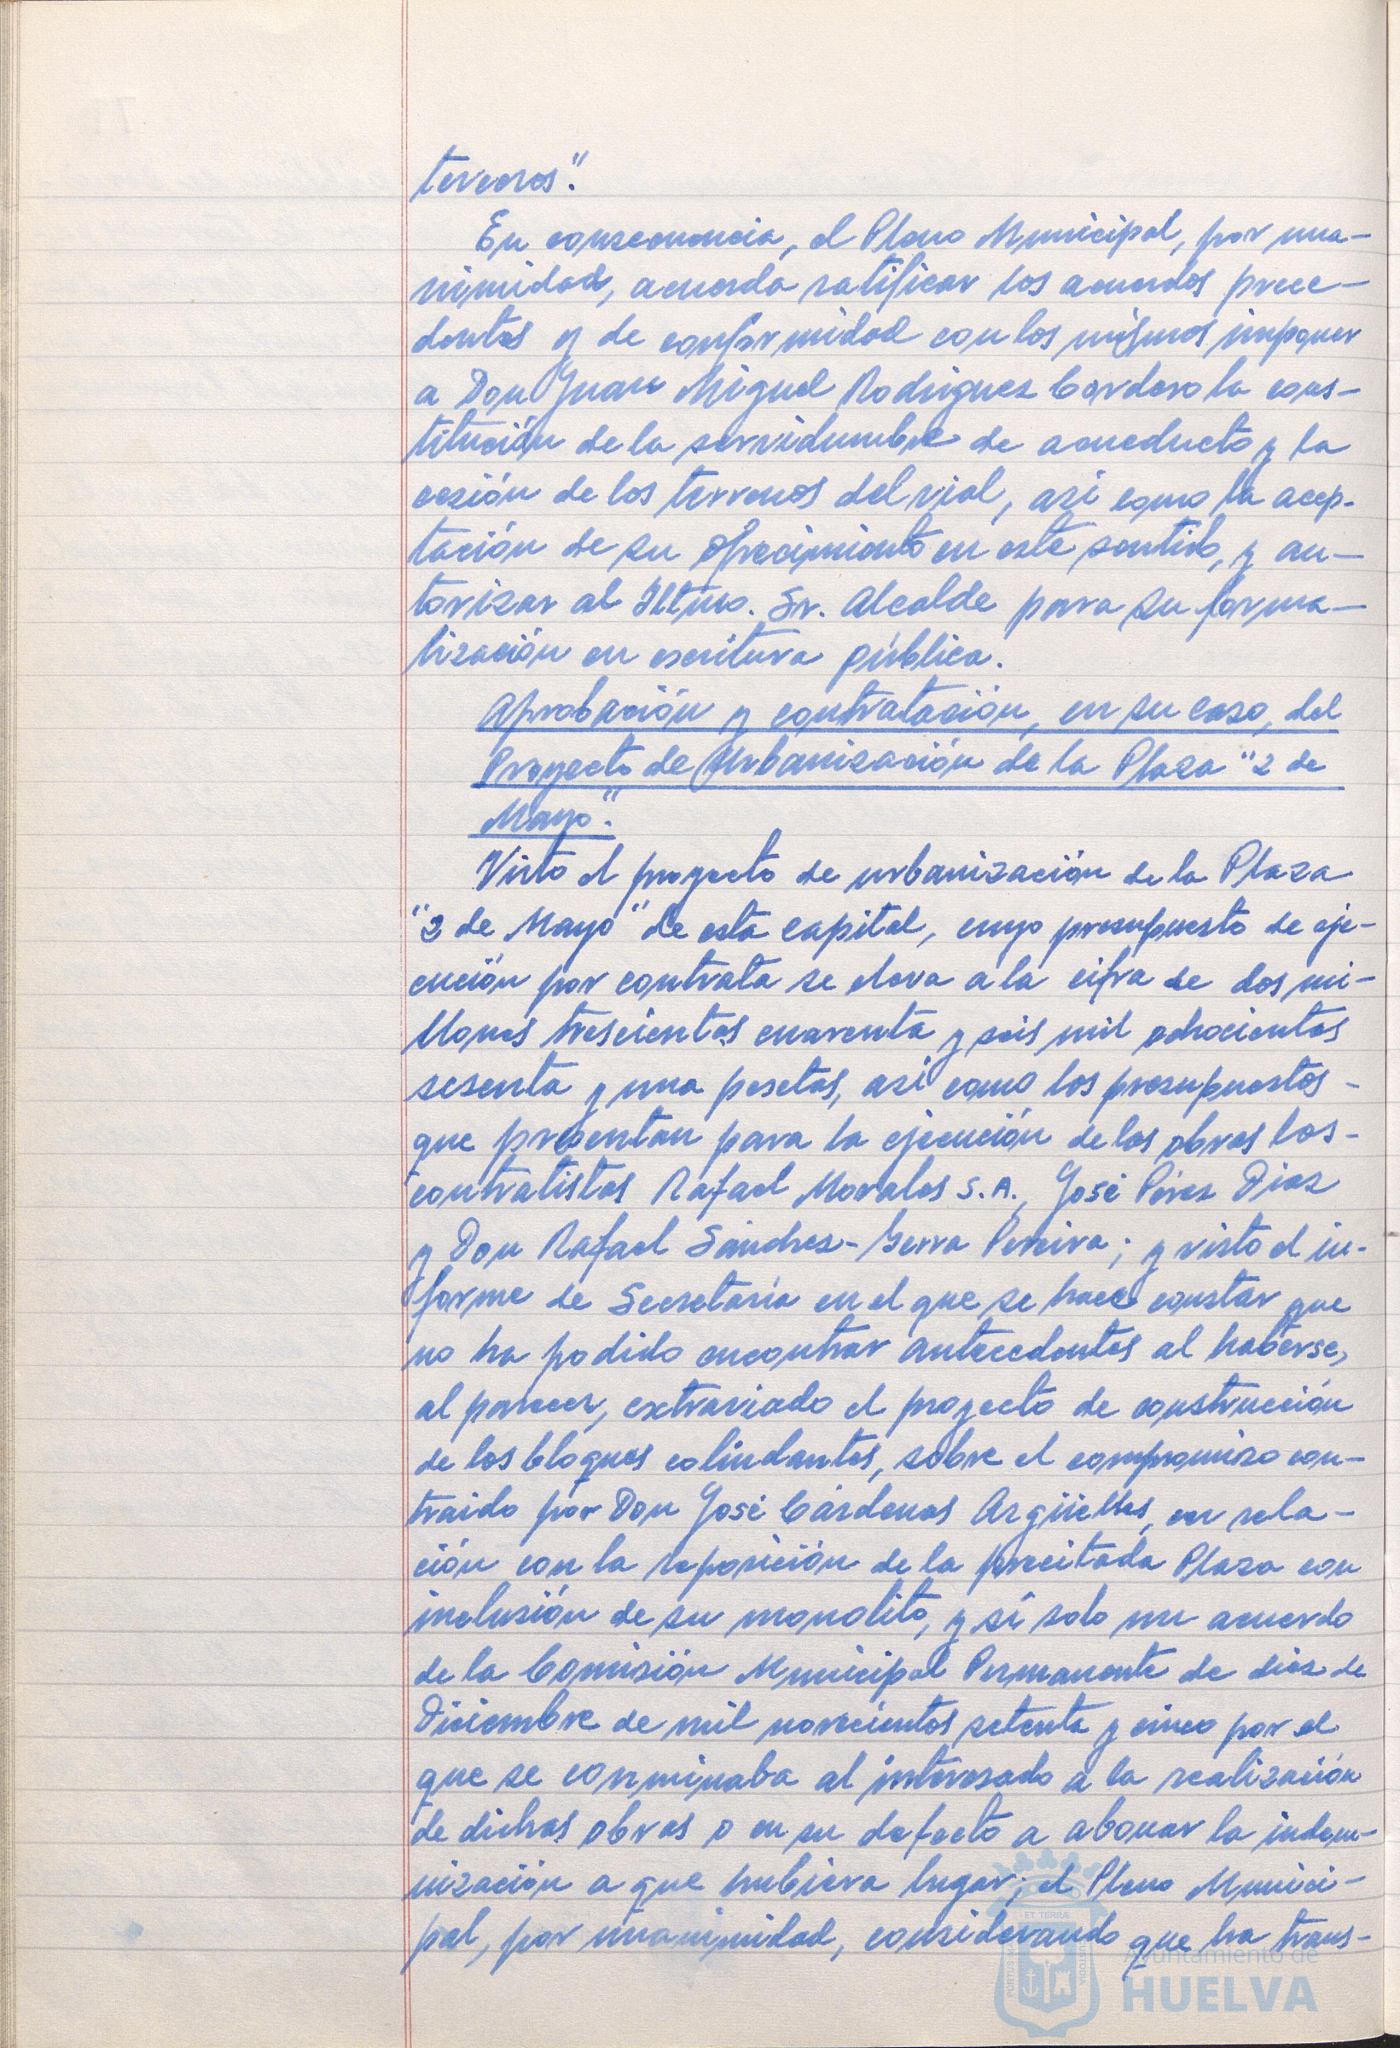 terceros".
En consecuencia, el Pleno Municipal, por una-
nimidad, acuerda ratificar los acuerdos prece-
dentes y de conformidad con los mismos imponer
a Don Juan Miguel Rodriguez Cordero la cons-
titución de la servidumbre de acueducto y la
cesión de los terrenos del vial, asi como la acep-
tación de su ofrecimiento en este sentido, y au-
torizar al Iltmo. Sr. Alcalde para su forma-
lización en escritura pública.
Aprobación y contratación, en su caso, del
Proyecto de Urbanización de la Plaza "2 de
Mayo".
Visto el proyecto de urbanización de la Plaza
"2 de Mayo" de esta capital, cuyo presupuesto de eje-
cución por contrata se eleva a la cifra de dos mi-
llones trescientas cuarenta y seis mil ochocientas
sesenta y una pesetas, asi como los presupuestos
que presentan para la ejecución de las obras los
contratistas Rafael Morales S.A., José Pérez Diaz
y Don Rafael Sánchez-Gerra Pereira; y visto el in-
forme de Secretaría en el que se hace constar que
no ha podido encontrar antecedentes al haberse,
al parecer, extraviado el proyecto de construcción
de los bloques colindantes, sobre el compromiso con-
traido por Don José Cárdenas Argüelles, en rela-
ción con la reposición de la precitada Plaza con
inclusión de su monolito, y sí solo un acuerdo
de la Comisión Municipal Permanente de diez de
Diciembre de mil novecientos setenta y cinco por el
que se conminaba al interesado a la realización
de dichas obras o en su defecto a abonar la indem-
nización a que hubiera lugar; el Pleno Munici-
pal, por unanimidad, considerando que ha trans-
Ayuntamiento de
HUELVA